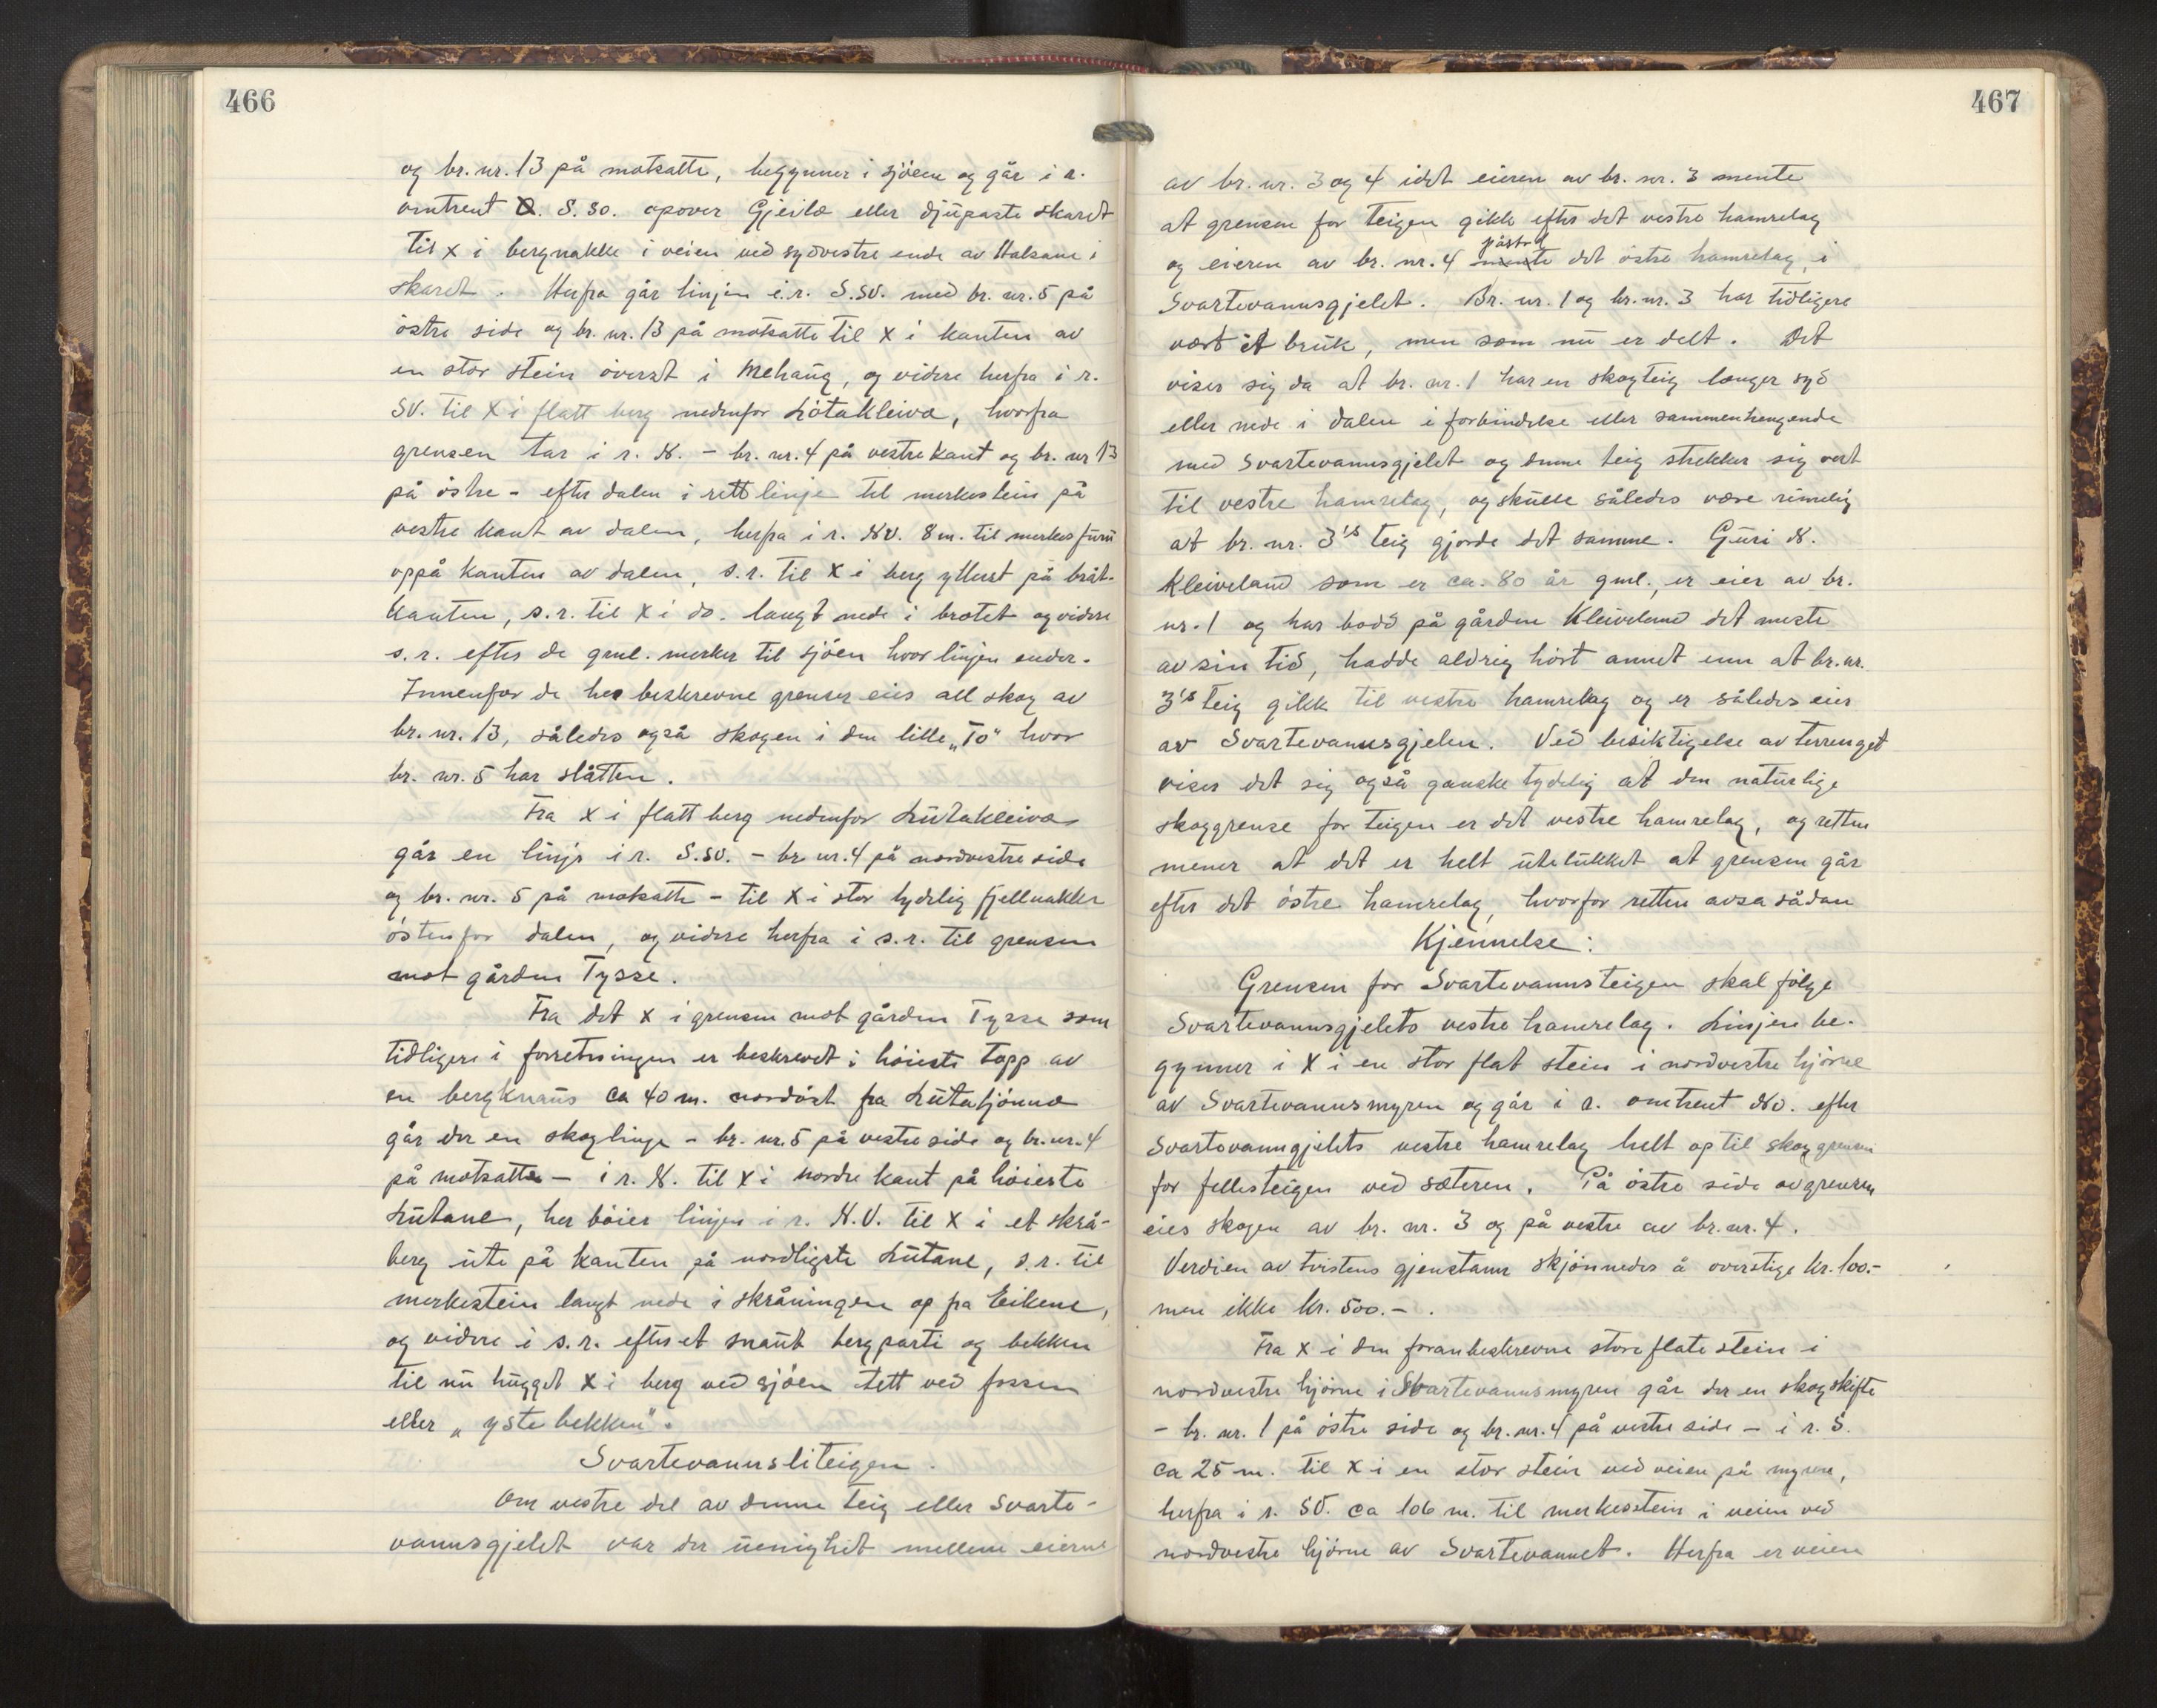 466
og br. nr. 13 på motsatte, begynner i sjöen og går i r.
omtrent S. SO. opover Gjeilo eller djupaste skaret
til x i bergnakke i veien ved sydvestre ende av Halsane i
skaret. Herfra går linjen i r. S.SV. med br. nr. 5 på
östre side og br. nr. 13 på motsatte til x i kanten av
en stor stein överst i Mehaug, og videre herfra i r.
SV. til x i flatt berg nedenfor Lötakleiva, hvorfra
grensen tar i r. N. - br. nr. 4 på vestre kant og br. nr 13
på östre - efter dalen i rett linje til merkestein på
vestre kant av dalen, herfra i r. NV. 8 m. til merkesfuru
oppå kanten av dalen, s.r. til x i berg ytterst på bråt-
kanten, s.r. til x i do. langt nede i brotet og videre
s.r. efter de gml. merker til sjöen hvor linjen ender.
Innenfor de her beskrevne grenser eies all skog av
br. nr. 13, således også skogen i den lille „To" hvor
br. nr. 5 har slåtten.
Fra x i flatt berg nedenfor Lutakleiva
går en linje i r. S.SV. - br nr. 4 på nordvestre side
og br. nr. 5 på motsatte - til x i stor tydelig fjellnakke
östenfor dalen, og videre herfra i s.r. til grensen
mot gården Tysse.
Fra det x i grensen mot gården Tysse som
tidligere i forretningen er beskrevet i höieste topp av
en bergknaus ca 40 m. nordöst fra Lutatjönna
går der en skoglinje - br. nr. 5 på vestre side og br. nr. 4
på motsatte - i r. N. til x i nordre kant på höieste
Lutane, her böier linjen i r. N.V. til x i et skrå-
berg ute på kanten på nordligste Lutane, s.r. til
merkestein langt nede i skråningen op fra Eikene,
og videre i s.r. efter et snaut bergparti og bekken
til nu hugget x i berg ved sjöen tett ved fossen
eller „yste bekken".
Svartevannsliteigen.
Om vestre del av denne teig eller Svarte-
vannsgjelet var der uenighet mellem eierne
467
av br. nr. 3 og 4 idet eieren av br. nr. 3 mente
at grensen for teigen gikk efter det vestre hamrelag
og eieren av br. nr. 4 mente påstod det östre hamrelag, i
Svartevannsgjelet. Br. nr. 1 og br. nr. 3 har tidligere
vært et bruk, men som nu er delt. Det
viser sig da at br. nr. 1 har en skogteig lenger syd
eller nede i dalen i forbindelse eller sammenhengende
med Svartevannsgjelet og denne teig strekker sig vest
til vestre hamrelag, og skulle således være rimelig
at br. nr. 3's teig gjorde det samme. Guri N.
Kleiveland som er ca. 80 år gml., er eier av br.
nr. 1 og har bodd på gården Kleiveland det meste
av sin tid, hadde aldrig hört annet enn at br. nr.
3's teig gikk til vestre hamrelag og er således eier
av Svartevannsgjelen. Ved besiktigelse av terrenget
viser det sig også ganske tydelig at den naturlige
skoggrense for teigen er det vestre hamrelag, og retten
mener at det er helt utelukket at grensen går
efter det östre hamrelag, hvorfor retten avsa sådan
Kjennelse:
Grensen for Svartevannsteigen skal fölge
Svartevannsgjelets vestre hamrelag. Linjen be-
gynner i x i en stor flat stein i nordvestre hjörne
av Svartevannsmyren og går i r. omtrent NO. efter
Svartevanngjelets vestre hamrelag helt op til skoggrensen
for fellesteigen ved sæteren. På östre side av grensen
eies skogen av br. nr. 3 og på vestre av br. nr. 4.
Verdien av tvistens gjenstann skjönnedes å overstige kr. 100.-
men ikke kr. 500.-.
Fra x i den foranbeskrevne store flate stein i
nordvestre hjörne i Svartevannsmyren går der en skogskifte
- br. nr. 1 på östre side og br. nr. 4 på vestre side - i r. S.
ca 25 m. til x i en stor stein ved veien på myren,
herfra i r. SV. ca 106 m. til merkesstein i veien ved
nordvestre hjörne av Svartevannet. Herfra er veien